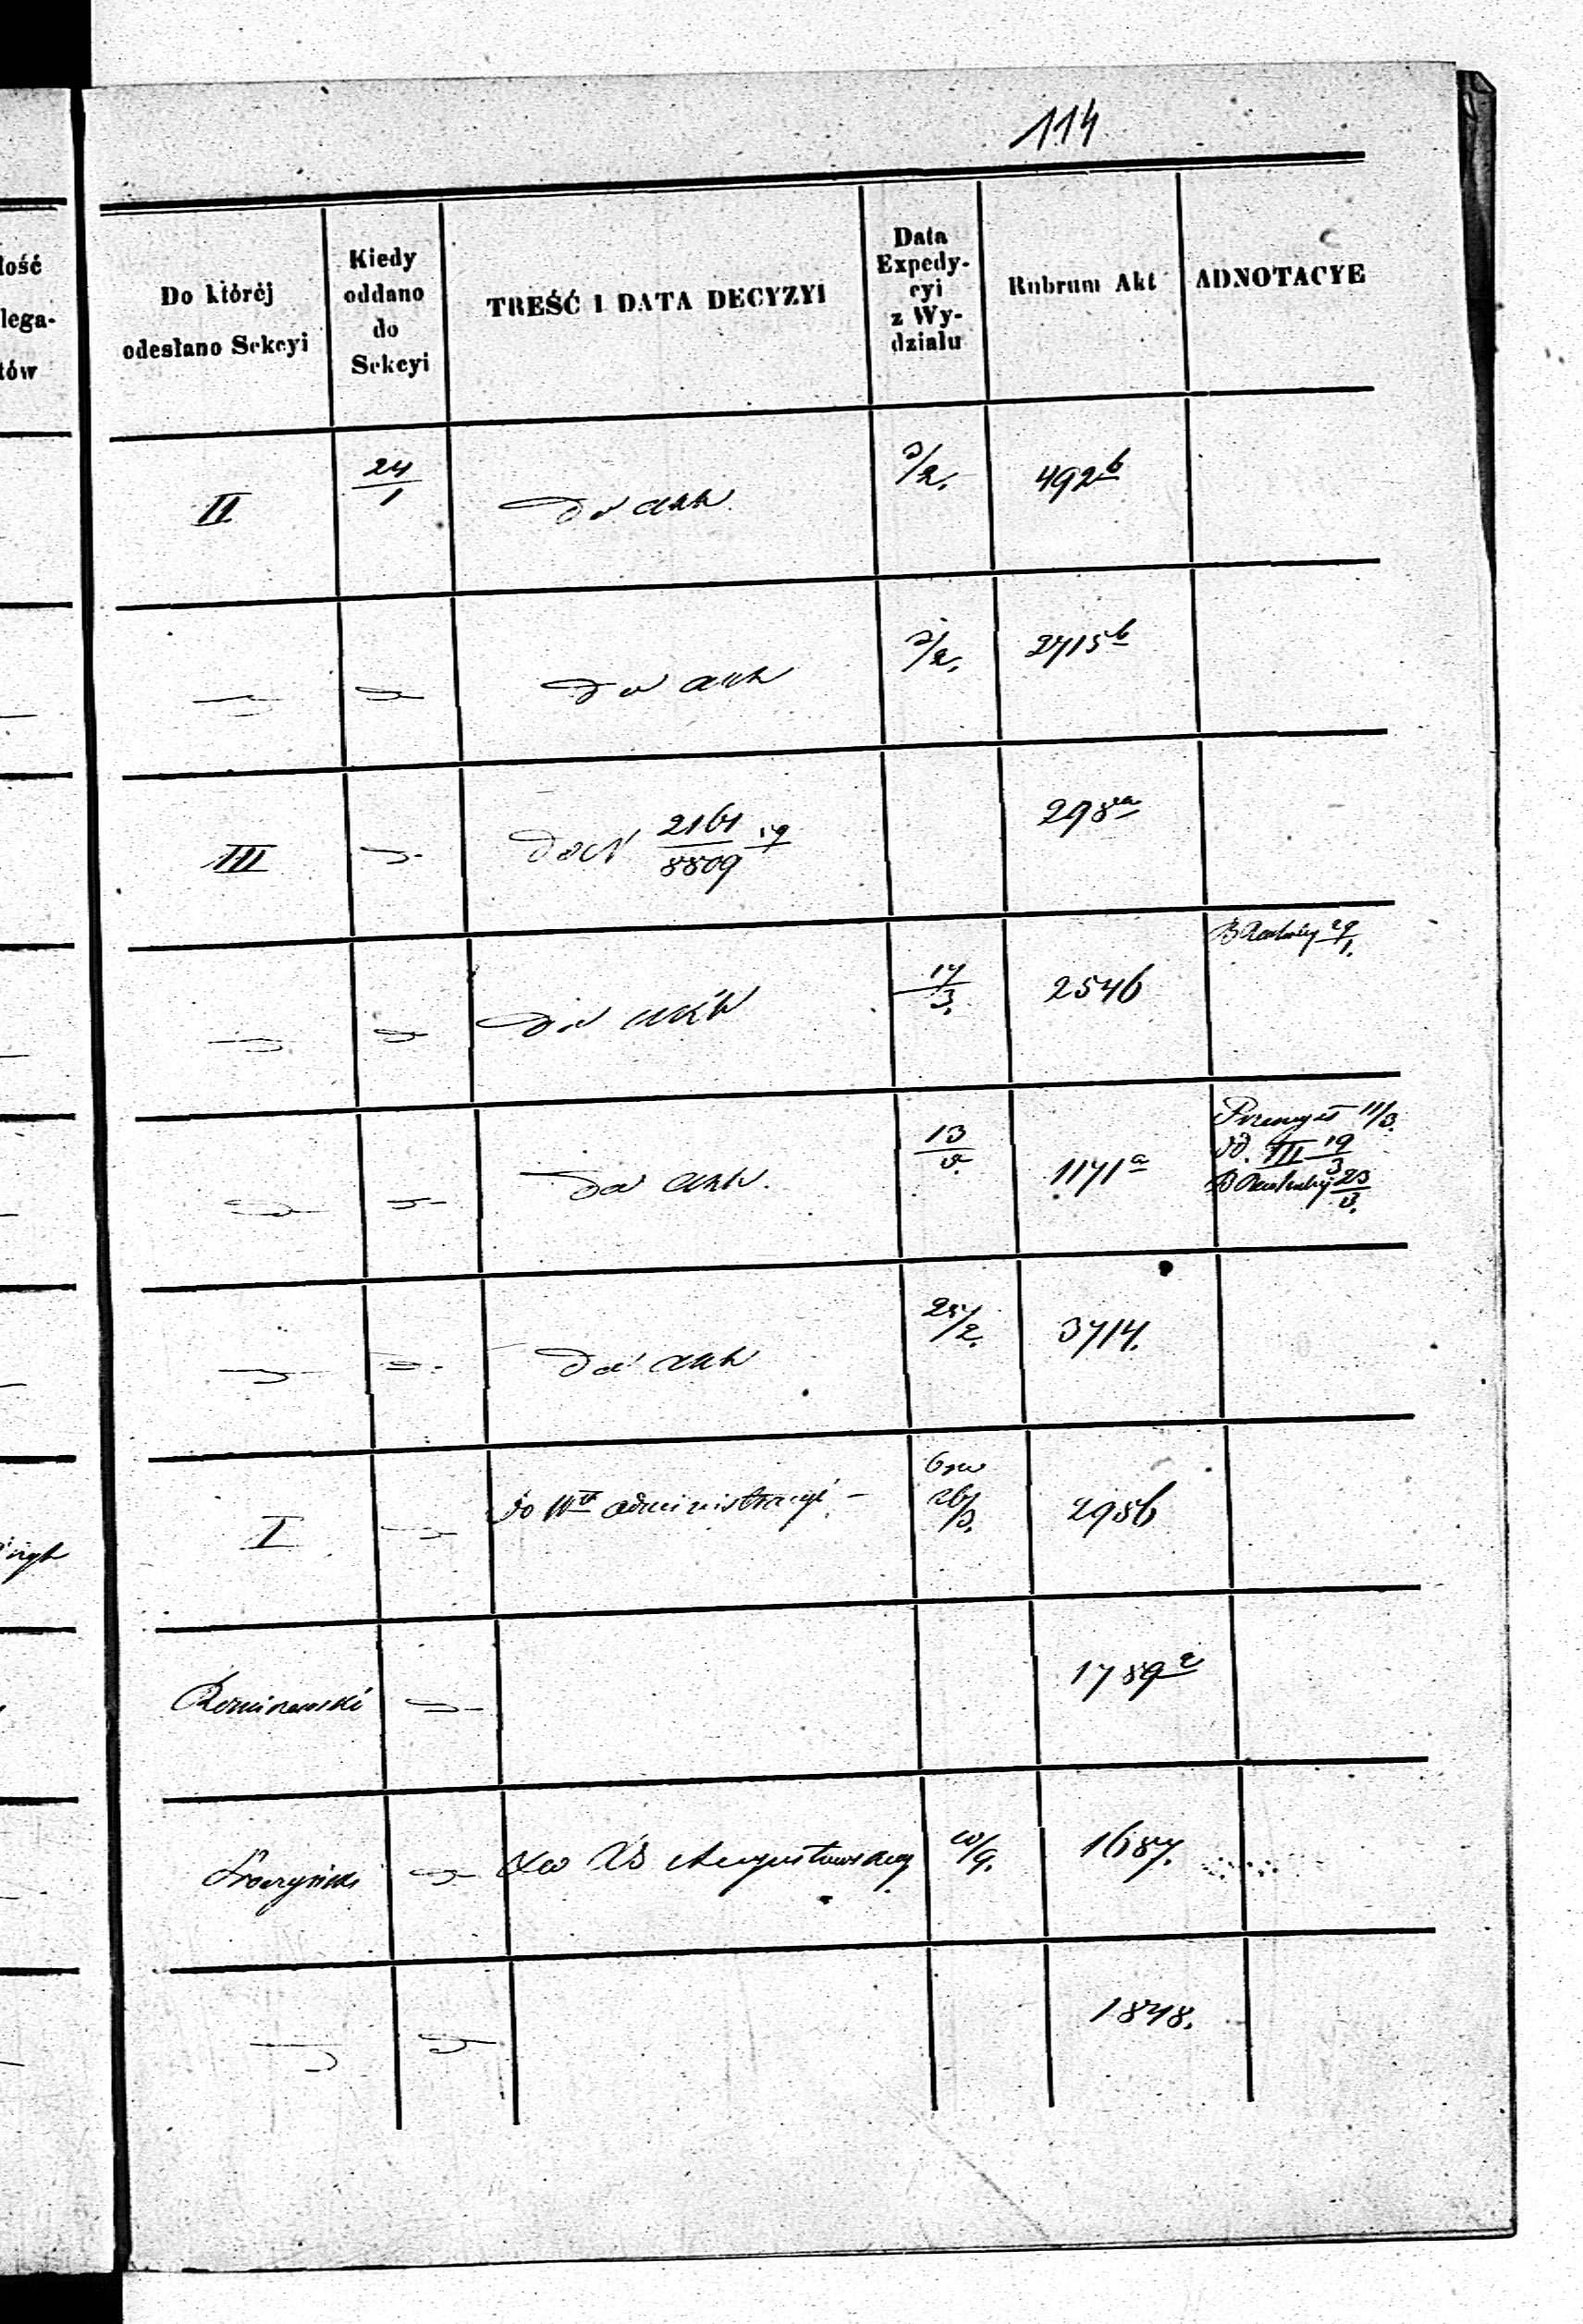 114
łość
lega-
tów
Do któréj
odesłano Sekcyi
Kiedy
oddano
do
Sekcyi
TREŚĆ I DATA DECYZYI
Data
Expedy-
cyi
z Wy-
działu
Rubrum Akt
ADNOTACYE
II 24/1 do akt 3/2. 492b
do akt 3/2. 2715b
III do N 2161/8809 298a
do akt 17/3. 2546 29/1.
do akt. 13/3. 1171a
Przemysł 11/3.
III 19/3
23/3.
do akt 25/2. 3714.
I do Wu administracyi. 26/3. 2956
1789a
do Augustowskiej 10/9. 1687.
1848.